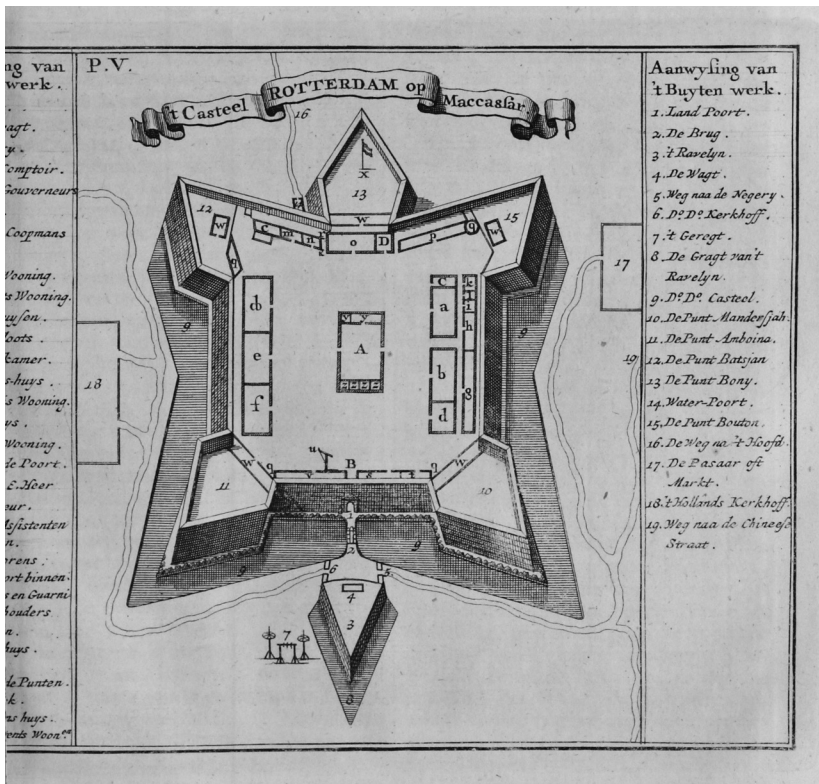 ng van
werk.
agt.
y.
omptoir.
Gouverneurs
Coopmans
Wooning.
s Wooning.
uyson.
loots.
kamer.
s-huys.
s Wooning.
ys.
Wooning.
de Poort.
E. Heer
eur.
Assistenten
n.
orens.
ort binnen.
s en Guarni
houders
n.
huys.
de Punten.
k.
ns huys.
P.V.
't Casteel ROTTERDAM op Maccassar
16
x
13
w
12
w
c
m
n
o
D
p
q
15
w
q
17
c
k
l
i
h
a
d
e
f
v
y
A
b
d
g
9
9
19
18
u
B
w
q
q
w
11
10
1
2
9
9
6
5
4
3
7
8
Aanwysing van
't Buyten werk.
1. Land Poort.
2. De Brug.
3. 't Ravelyn.
4. De Wagt.
5. Weg naa de Negery.
6. Do. Do. Kerkhoff.
7. 't Geregt.
8. De Gragt van't
Ravelyn.
9. Do. Do. Casteel.
10. De Punt Manderssah.
11. De Punt Amboina.
12. De Punt Batsjan
13 De Punt Bony.
14. Water-Poort.
15. De Punt Bouton.
16. De Weg na 't Hoofd.
17. De Pasaar oft
Markt.
18. 't Hollands Kerkhoff.
19. Weg naa de Chineese
Straat.